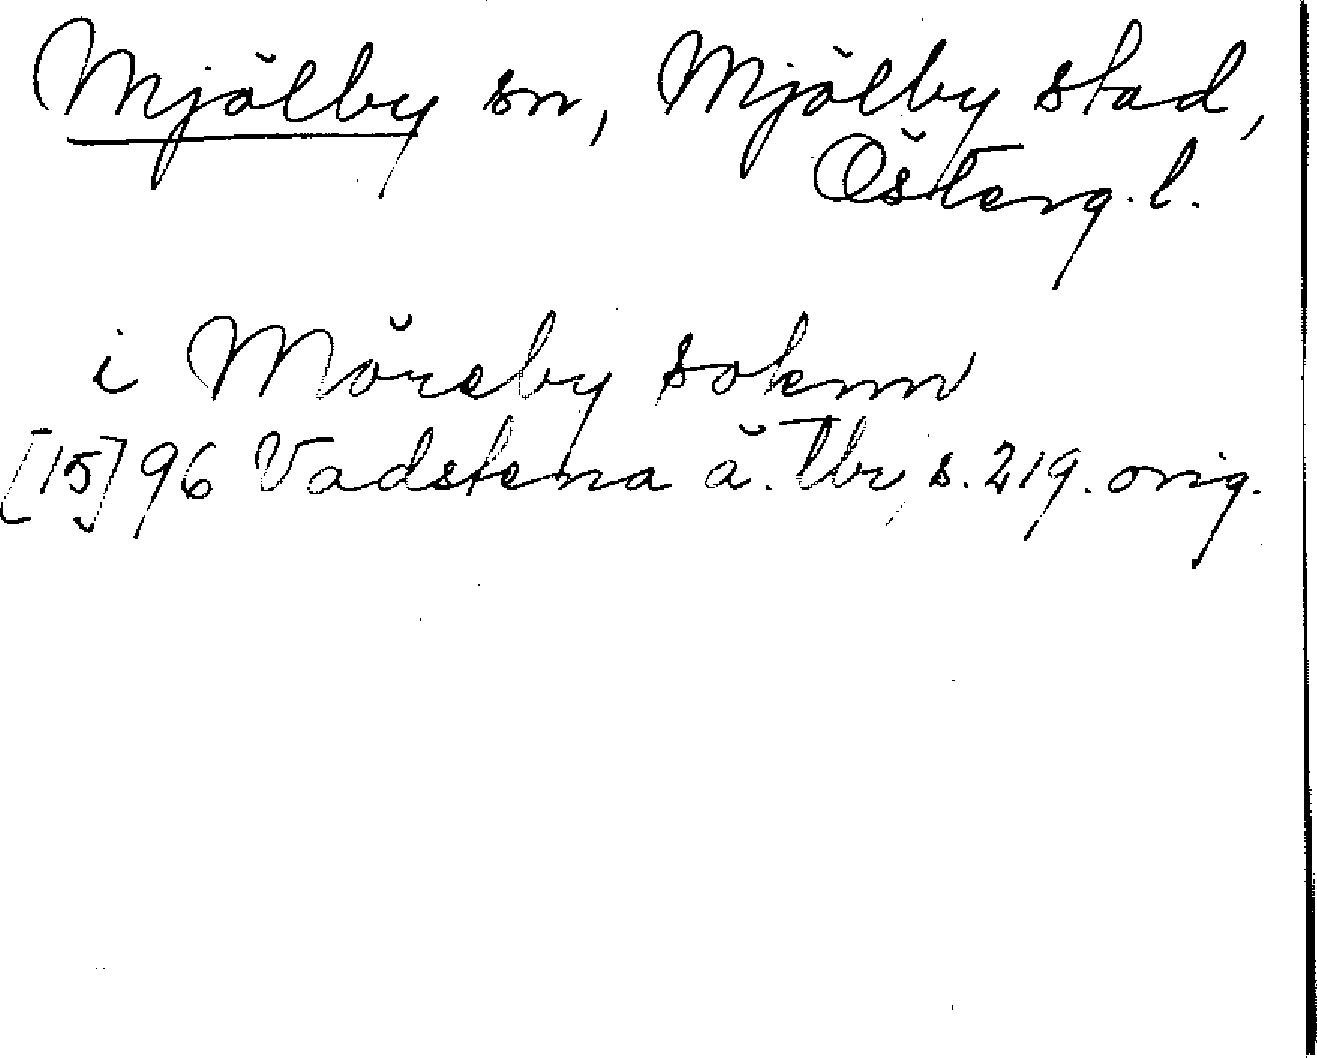 Mjölby sn, Mjölby stad,
Österg. l.
i Möreby soknn
[15]96 Vadstena ä. tbr, s. 219. orig.